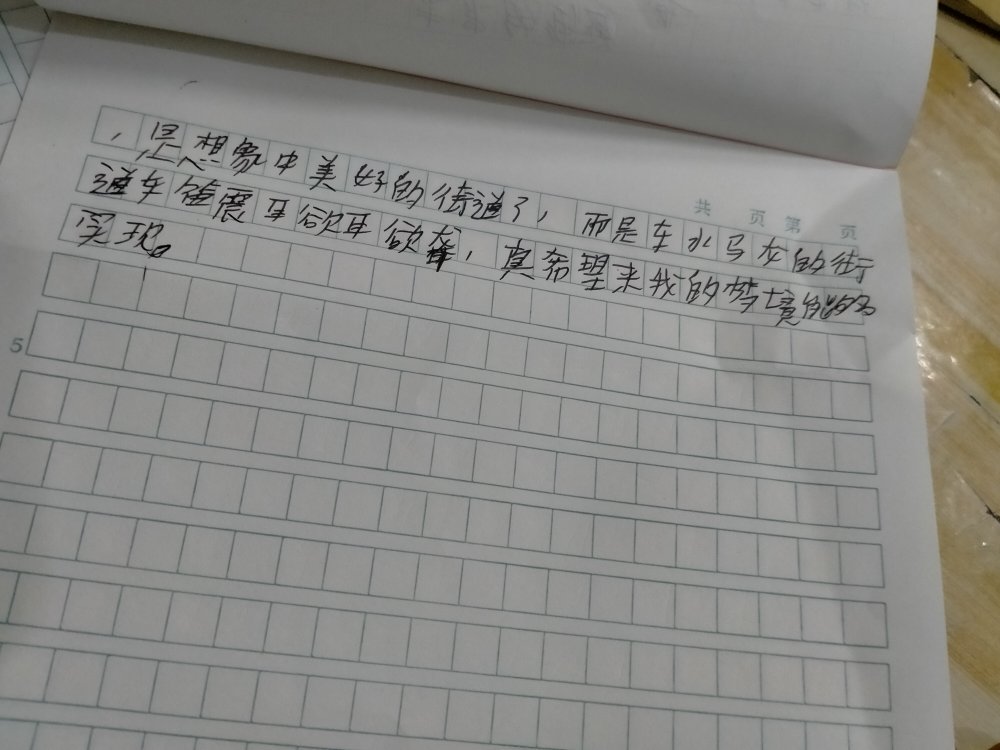 共 页 第 页
，是想象中美好的街道了，而是车水马龙的街
道车笛震耳欲耳欲聋，真希望来我的梦境能够
实现。
5